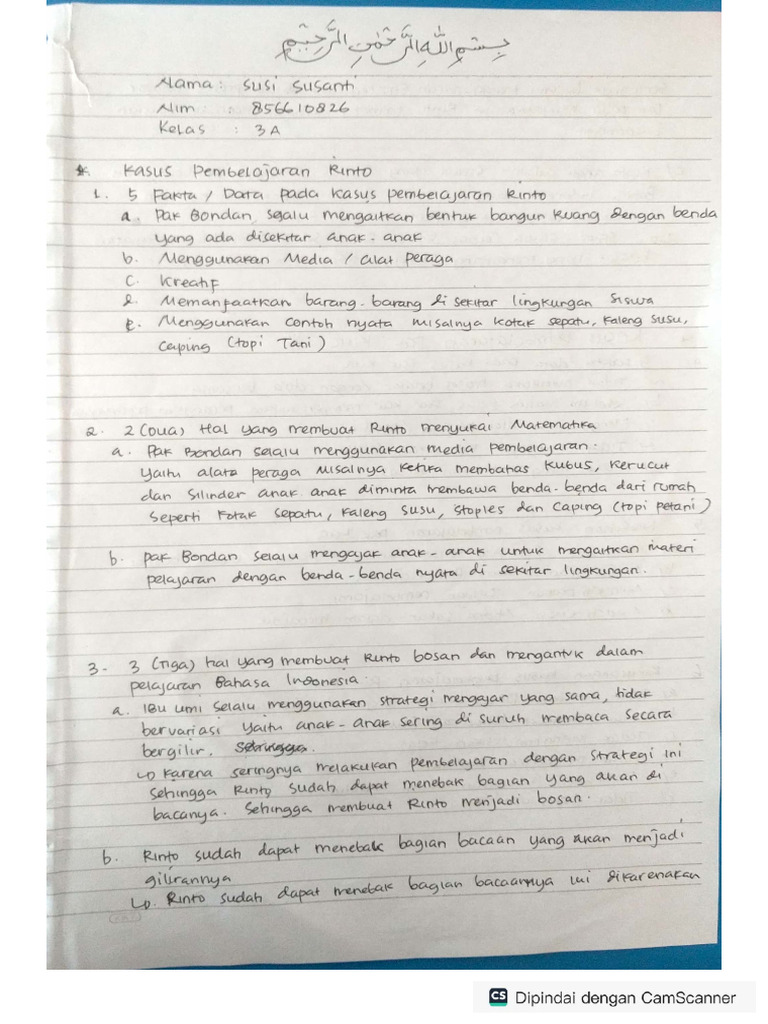 بسم الله الرحمن الرحيم
Nama : Susi Susanti
Nim 856610826
Kelas : 3A
* Kasus Pembelajaran Rinto
1. 5 Fakta / Data pada kasus pembelajaran Rinto
a. Pak Bondan sealu mengaitkan bentuk bangun Ruang dengan benda
yang ada disekitar anak-anak
b. Menggunakan Media / alat peraga
C. Kreatif
d. Memanfaatkan barang-barang di sekitar lingkungan siswa
e. Menggunakan contoh nyata misalnya kotak sepatu, kaleng susu,
caping (topi Tani)
2. 2 (Dua) Hal yang membuat Rinto menyukai Matematika
a. Pak Bondan selalu menggunakan media pembelajaran.
Yaitu alata peraga misalnya ketika membahas kubus, kerucut
dan silinder anak anak diminta membawa benda-benda dari rumah
seperti kotak sepatu, kaleng susu, stoples dan caping (topi petani)
b. pak Bondan selalu mengajak anak-anak untuk mengaitkan materi
pelajaran dengan benda-benda nyata di sekitar lingkungan.
3- 3 (Tiga) hal yang membuat Rinto bosan dan mengantuk dalam
pelajaran Bahasa Indonesia
a. Ibu umi selalu menggunakan strategi mengajar yang sama, tidak
bervariasi yaitu anak-anak sering di suruh membaca secara
bergilir. Sehingga.
↳ Karena seringnya melakukan pembelajaran dengan strategi ini
sehingga Rinto sudah dapat menebak bagian yang akan di
bacanya. Sehingga membuat Rinto menjadi bosan.
b. Rinto sudah dapat menebak bagian bacaan yang akan menjadi
gilirannya
↳. Rinto sudah dapat menebak bagian bacaannya ini dikarenakan
CS Dipindai dengan CamScanner